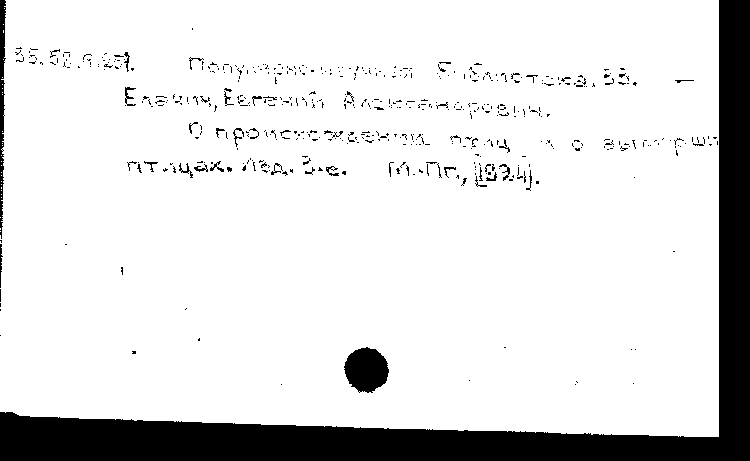 35.52.9.251. Популярно-научная библиотека. 33. —
Елачич, Евгений Александрович.
О происхождении птиц и о вымерши
птицах. Изд. 3-е. М.-Пг., [1924].